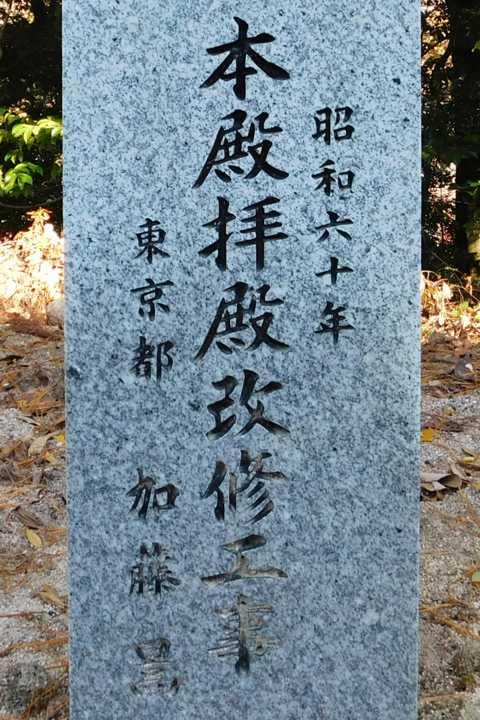 昭和六十年
本殿拝殿改修工事
東京都 加藤